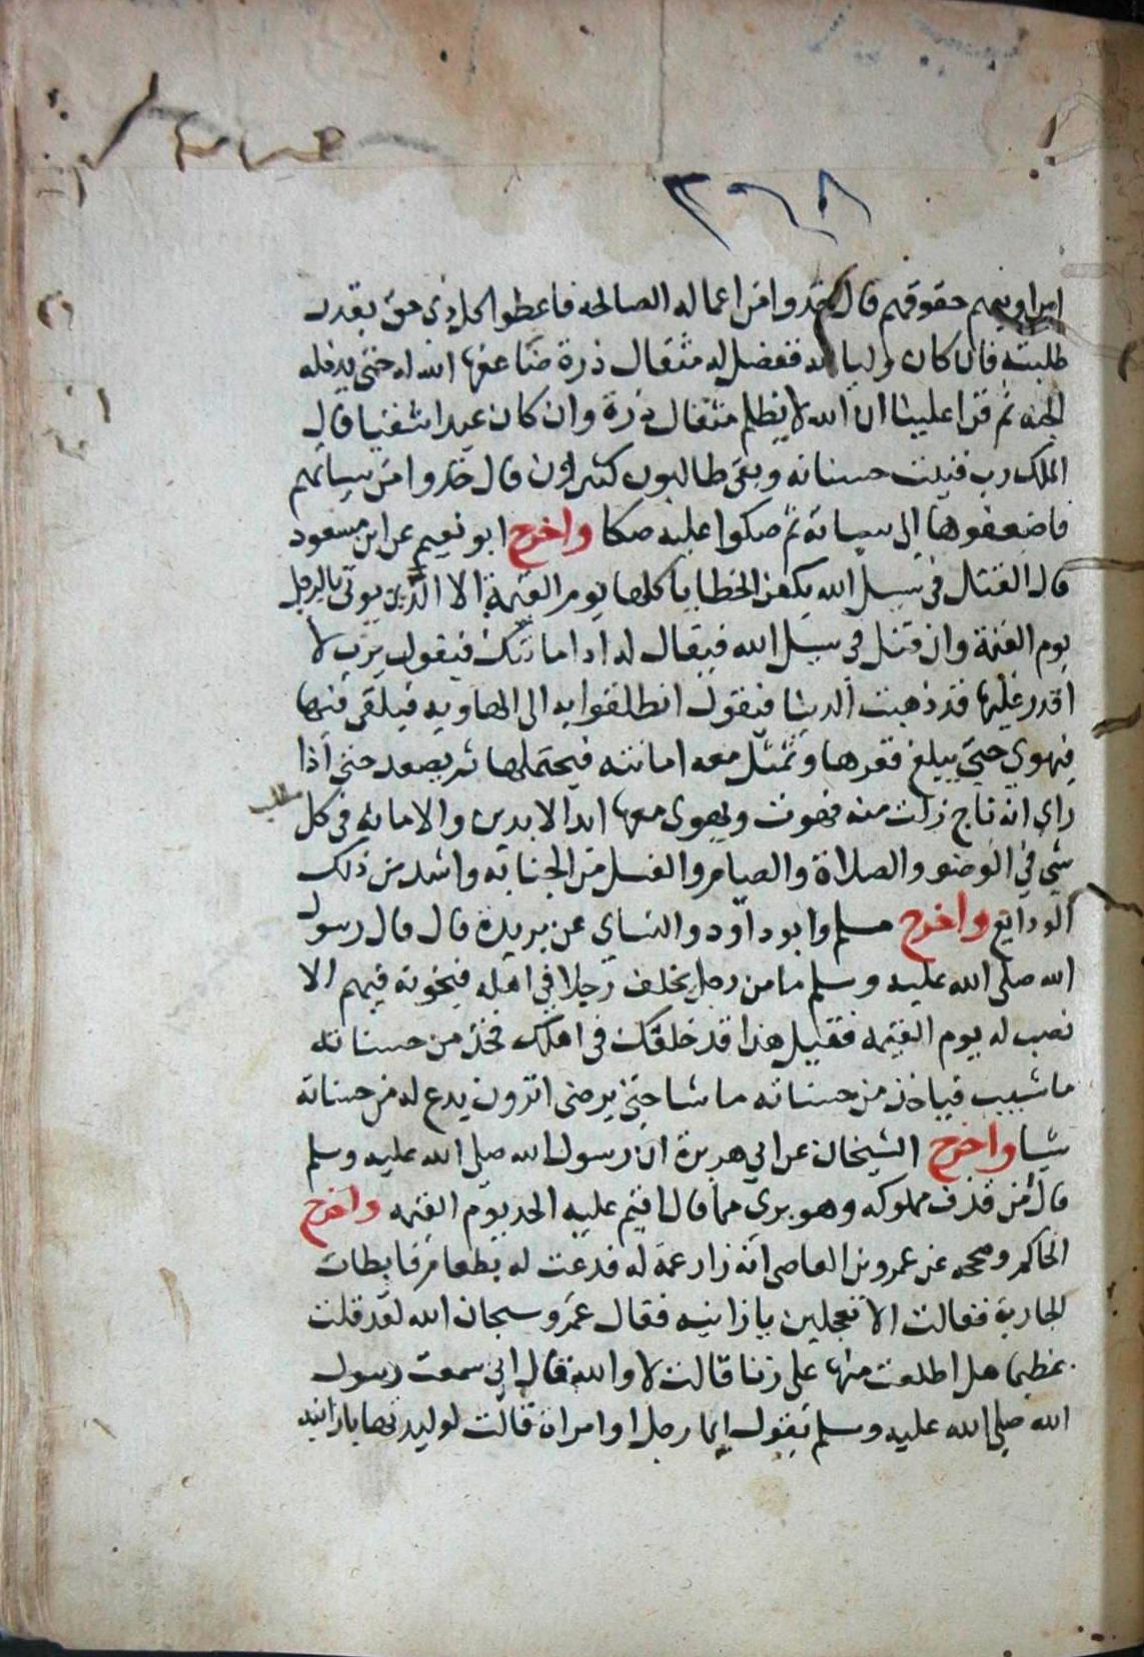 ٣٦٨
اين اوتيهم حقوقهم قال خذوا من اعماله الصالحه فاعطوا كل ذى حق بقدر
طلبته فان كان وليا لله ففضل له مثقال ذرة ضاعفها الله له حتى يدخله
الجنه ثم قرا علينا ان الله لا يظلم مثقال ذرة وان كان عبدا شقيا قال
الملك رب فنيت حسناته وبقى طالبون كثيرون قال خذوا من سياتهم
فاضعفوها الى سياته ثم صكوا عليه صكا واخرج ابو نعيم عن ابن مسعود
قال القتل فى سبيل الله يكفر الخطايا كلها يوم القيمة الا الدين يوتى بالرجل
يوم القيمة وان قتل فى سبيل الله فيقال له اد امانتك فيقول يرب لا
اقدر عليها قد ذهبت الدنيا فيقول انطلقوا به الى الهاويه فيلقى فيها
فيهوي حتى يبلغ قعرها وتمثل معه امانته فيحتملها ثم يصعد حتى اذا
راي انه ناج زلت منه فهوت وهوى معها ابدا الابدين والامانه فى كل
شي فى الوضو والصلاة والصيام والغسل من الجنابه واشد من ذلك
الودايع واخرج مسلم وابو داود والنساي عن بريدة قال قال رسول
الله صلى الله عليه وسلم ما من رجل يخلف رجلا في اهله فيخونه فيهم الا
نصب له يوم القيمه فقيل هذا قد خلفك فى اهلك فخذ من حسناته
ما شيت فياخذ من حسناته ما شا حتى يرضى اترون يدع له من حسناته
شيا واخرج الشيخان عن ابي هريرة ان رسول الله صلى الله عليه وسلم
قال من قذف مملوكه وهو بري مما قال اقيم عليه الحد يوم القيمه واخرج
الحاكم وصححه عن عمرو بن العاصى انه زار عمة له فدعت له بطعام فابطات
الجارية فقالت الا تعجلين يا زانيه فقال عمرو سبحان الله لقد قلت
عظيما هل اطلعت منها على زنا قالت لا والله قال انى سمعت رسول
الله صلى الله عليه وسلم يقول ايما رجل او امراة قالت لوليدتها يا زانيه
مطلب